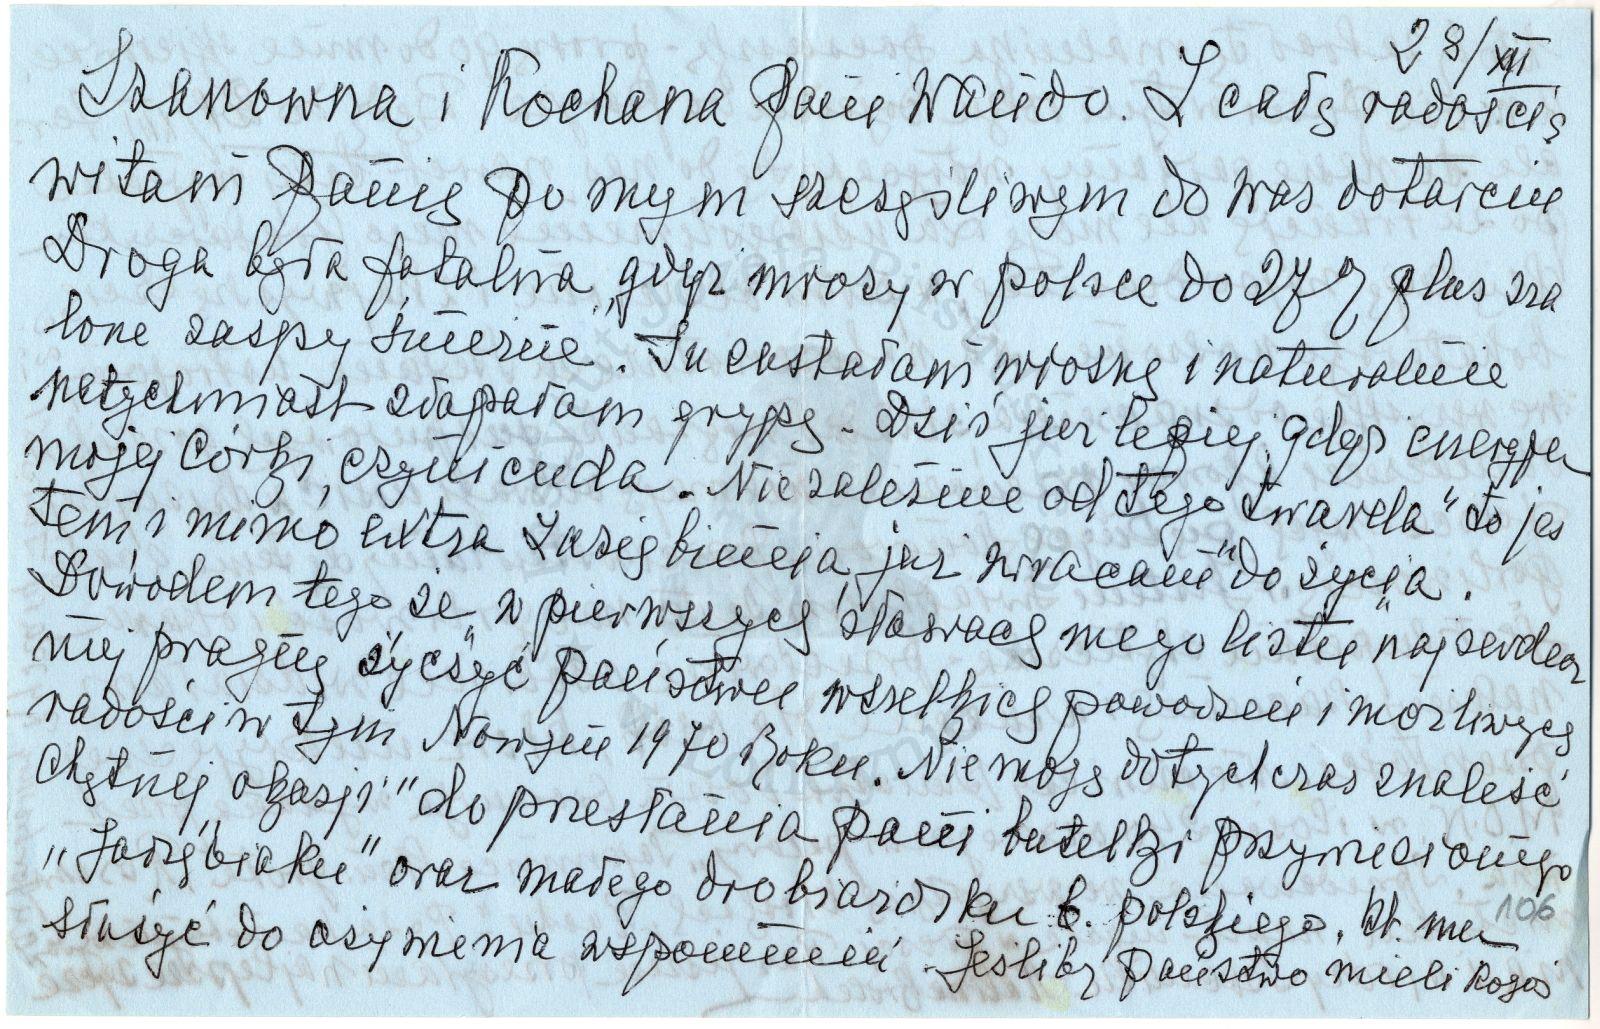 28/XII
Szanowna i Kochana Pani Wando. Z całą radością
witam Panią po mym szczęśliwym do was dotarciu
Droga była fatalna, gdyż mrozy w polsce do 27 plus sza
lone zaspy śnieżne. Tu zastałam wiosnę i naturalnie
natychmiast złapałam grypę - Dziś już lepiej, gdyż energja
mojej Córki, czyni cuda. Niezależnie od tego twarda" to jes
tem i mimo extra zaziębienia już "wracam" do życia.
Dowodem tego że w pierwszych słowach mego listu "najserdecz
niej pragnę życzyć państwu wszelkich powodzeń i możliwych
radości w tym Nowym 1970 Roku. Nie mogę dotychczas znaleść
chętnej okazji" do przesłania pani butelki przywiezionego
"Jarzębiaku" oraz małego drobiazdżku b. polskiego, kt. ma
służyć do ożywienia wspomnień - Jesliby państwo mieli kogoś
106